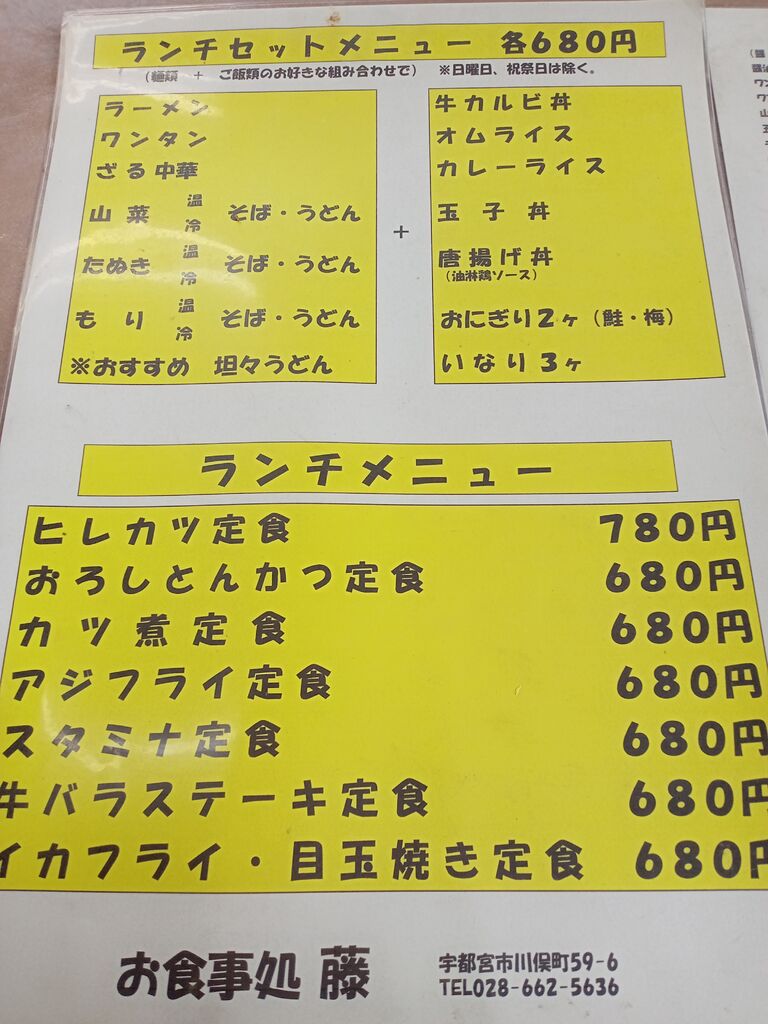 ランチセットメニュー 各680円
(麺類 + ご飯類のお好きな組み合わせで) ※日曜日、祝祭日は除く。
ラーメン
ワンタン
ざる中華
山菜 温 冷 そば・うどん
たぬき 温 冷 そば・うどん
もり 温 冷 そば・うどん
※おすすめ 坦々うどん
+
牛カルビ丼
オムライス
カレーライス
玉子丼
唐揚げ丼
(油淋鶏ソース)
おにぎり2ヶ(鮭・梅)
いなり3ヶ
ランチメニュー
ヒレカツ定食 780円
おろしとんかつ定食 680円
カツ煮定食 680円
アジフライ定食 680円
スタミナ定食 680円
牛バラステーキ定食 680円
イカフライ・目玉焼き定食 680円
お食事処 藤
宇都宮市川俣町59-6
TEL028-662-5636